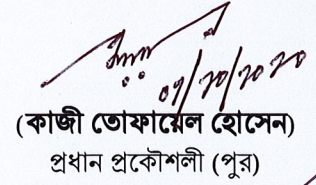 ০৭/১০/২০২০
(কাজী তোফায়েল হোসেন)
প্রধান প্রকৌশলী (পুর)